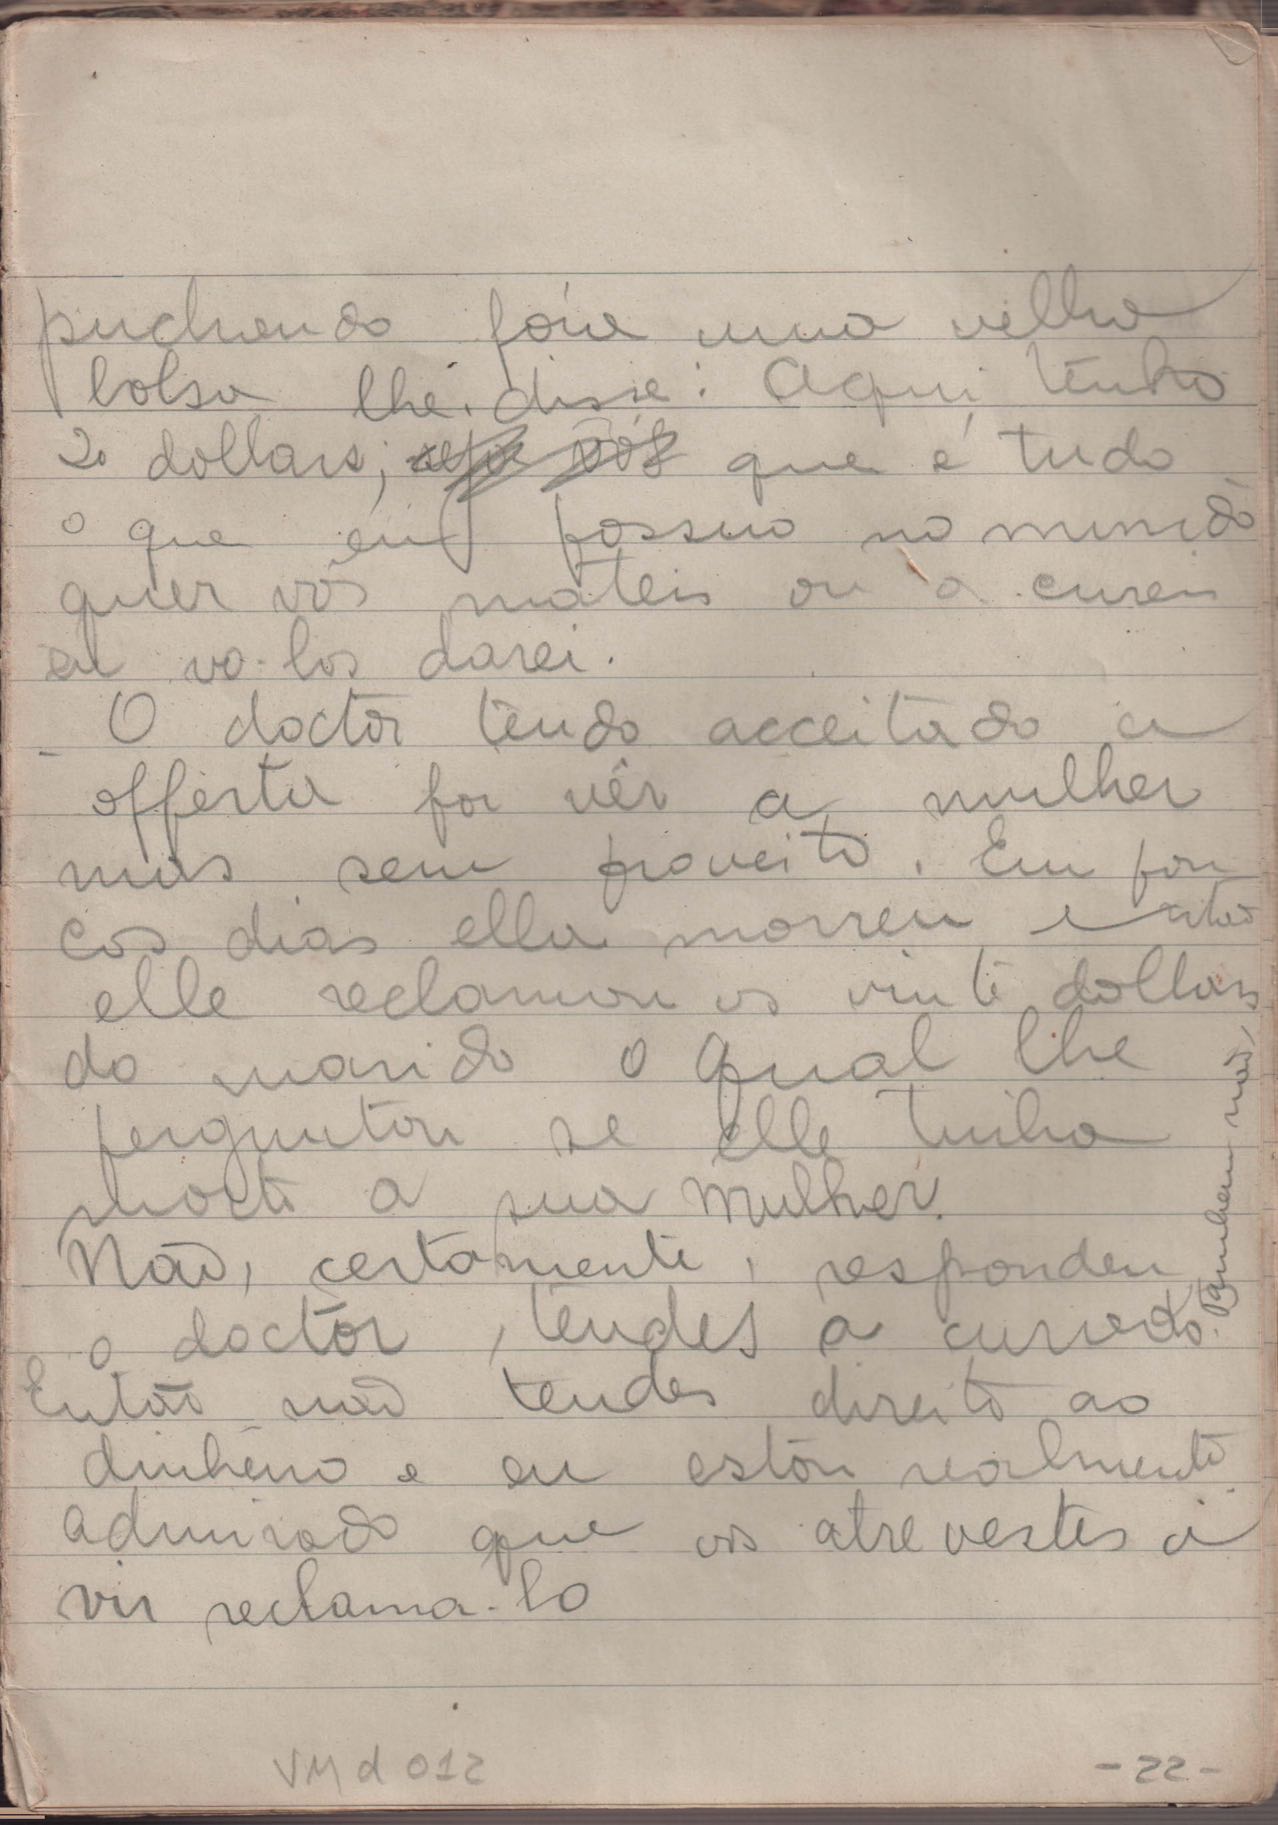 puchando fóra uma velha
bolsa lhe disse: Aqui tenho
20 dollars, que é tudo
o que eu possuo no mundo
quer vós mateis ou a cureis
eu vo-los darei.
O doctor tendo acceitado a
offerta foi vêr a mulher
mas sem proveito. Em pou
cos dias ella morreu e então
elle reclamou os vinte dollars
do marido o qual lhe
perguntou se elle tinha
morto a sua mulher.
Não, certamente, respondeu
o doctor, tendes a curado.
Tambem não,
Então não tendes direito ao
dinheiro e eu estou realmente
admirado que vos atrevestes a
vir reclama-lo
VMd 012
-22-